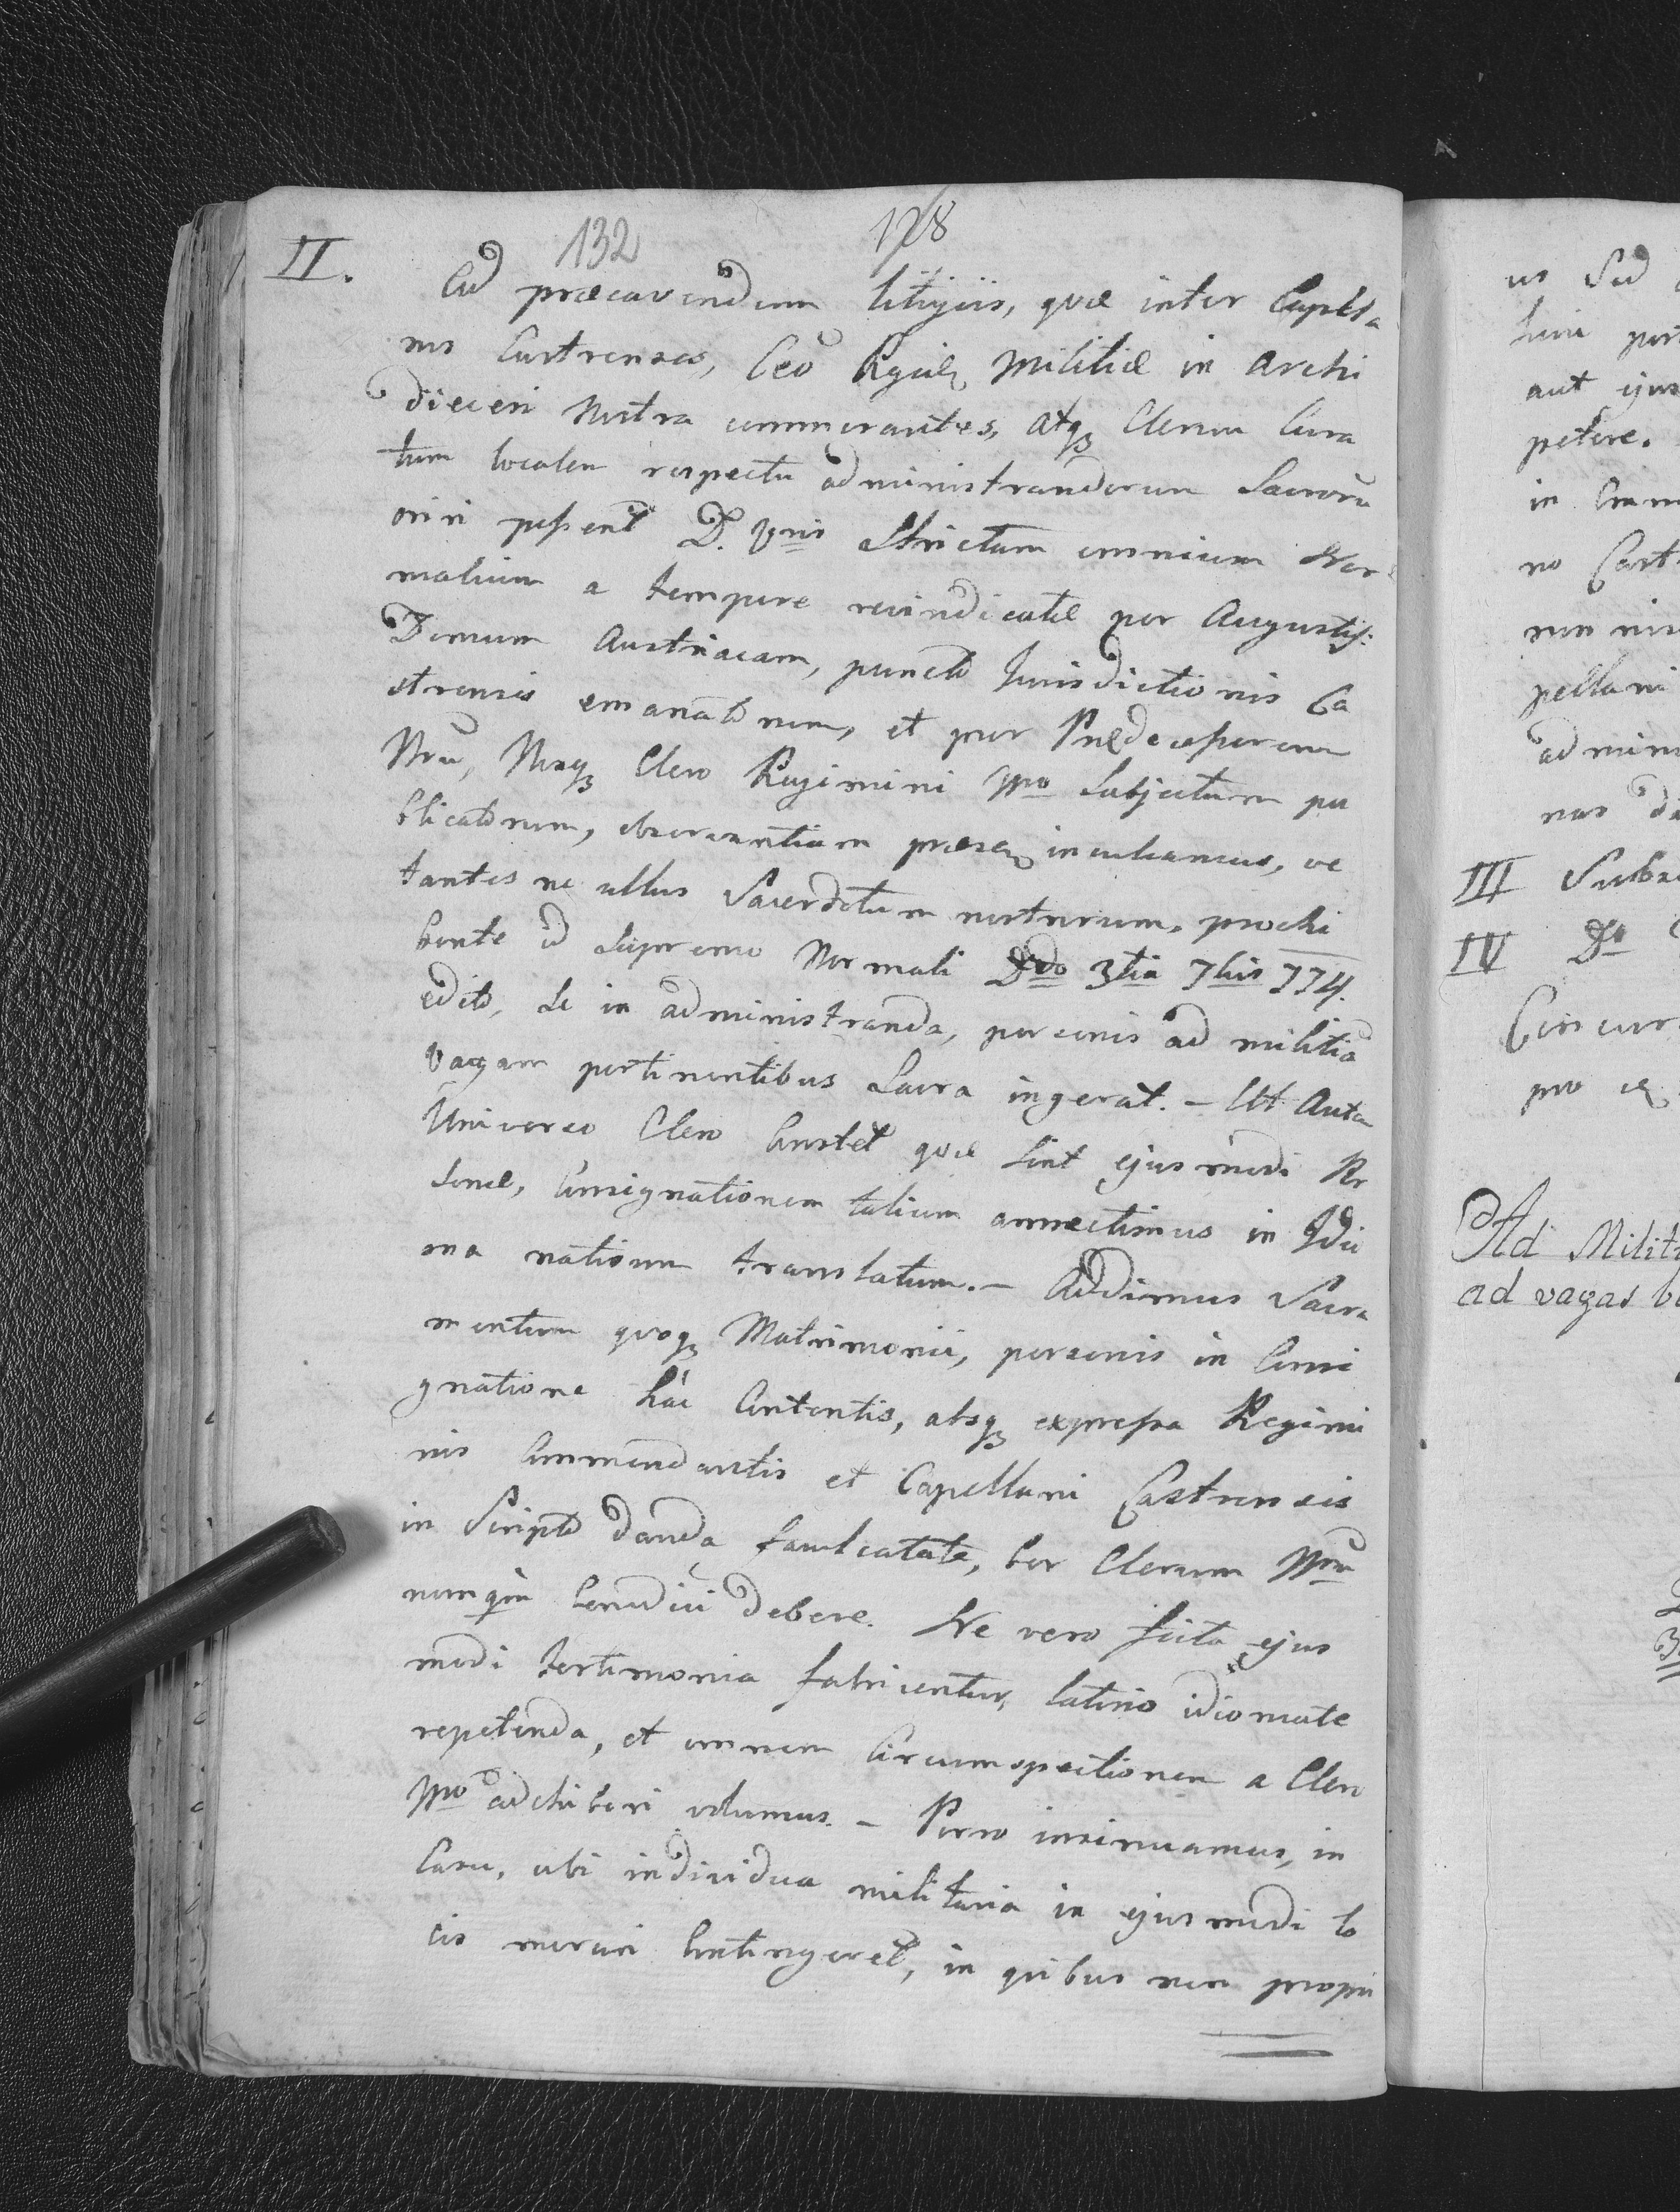 132 128
II. Ad præcavendum litigiis, quæ inter Capella
nos Castrenses, Ceo Regiæ Militiæ in Archi
diœcesi Nostra commorantes, atq₃ Clerum Cura
tum localem respectu administrandorum Sacrorũ
oriri possent D. Vris strictam omnium Nor
malium a tempore revindicatæ per Augustiss:
Domum Austriacam, puncto Jurisdictionis Ca
strensis emanatorum, et per Prædecessorem
Nrũ, Nosq₃ Clero Regimini Nro Subjectum pu
blicatorum, observantiam præsen inculcamus, ve
tantes ne ullus Sacerdotum nostrorum, prohi
bente id Supremo Normali Ddo 3tia 7bris 774.
edito, se in administranda, personis ad militiã
vagam pertinentibus Sacra ingerat. – Ut Autem
Universo Clero Constet quæ sint ejusmodi Per
sonæ, Consignationem talium annectimus in Idio
ma nationum translatum. – Addimus Sacra
mentum quoq₃ Matrimonii, personis in Consi
gnatione hâc Contentis, absq₃ expressa Regimi
nis Commendantis et Capellani Castrensis
in Scripto danda facultatate, per Clerum Nrũ
nunquam benedici debere. Ne vero ficta ejus
modi testimonia fabricentur, latino idiomate
repetenda, et omnem Circumspectionem a Clero
Nro adhiberi volumus. – Porro insinuamus, in
Casu, ubi individua militaria in ejusmodi lo
cis morari Contingeret, in quibus non propri
us Sed
huic
aut ejus
petere.
in
no Cast
non nisi
pellani
admini
nas
III Subs
IV Dto
Concur
pro
Ad Milit
ad vagas